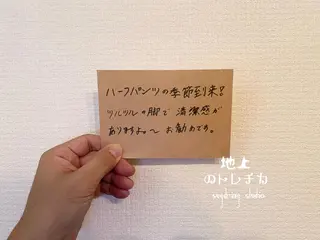 ハーフパンツの季節到来?
ツルツルの脚で 清潔感が
ありますよ。〜 お勧めです。
地上
のトレチカ